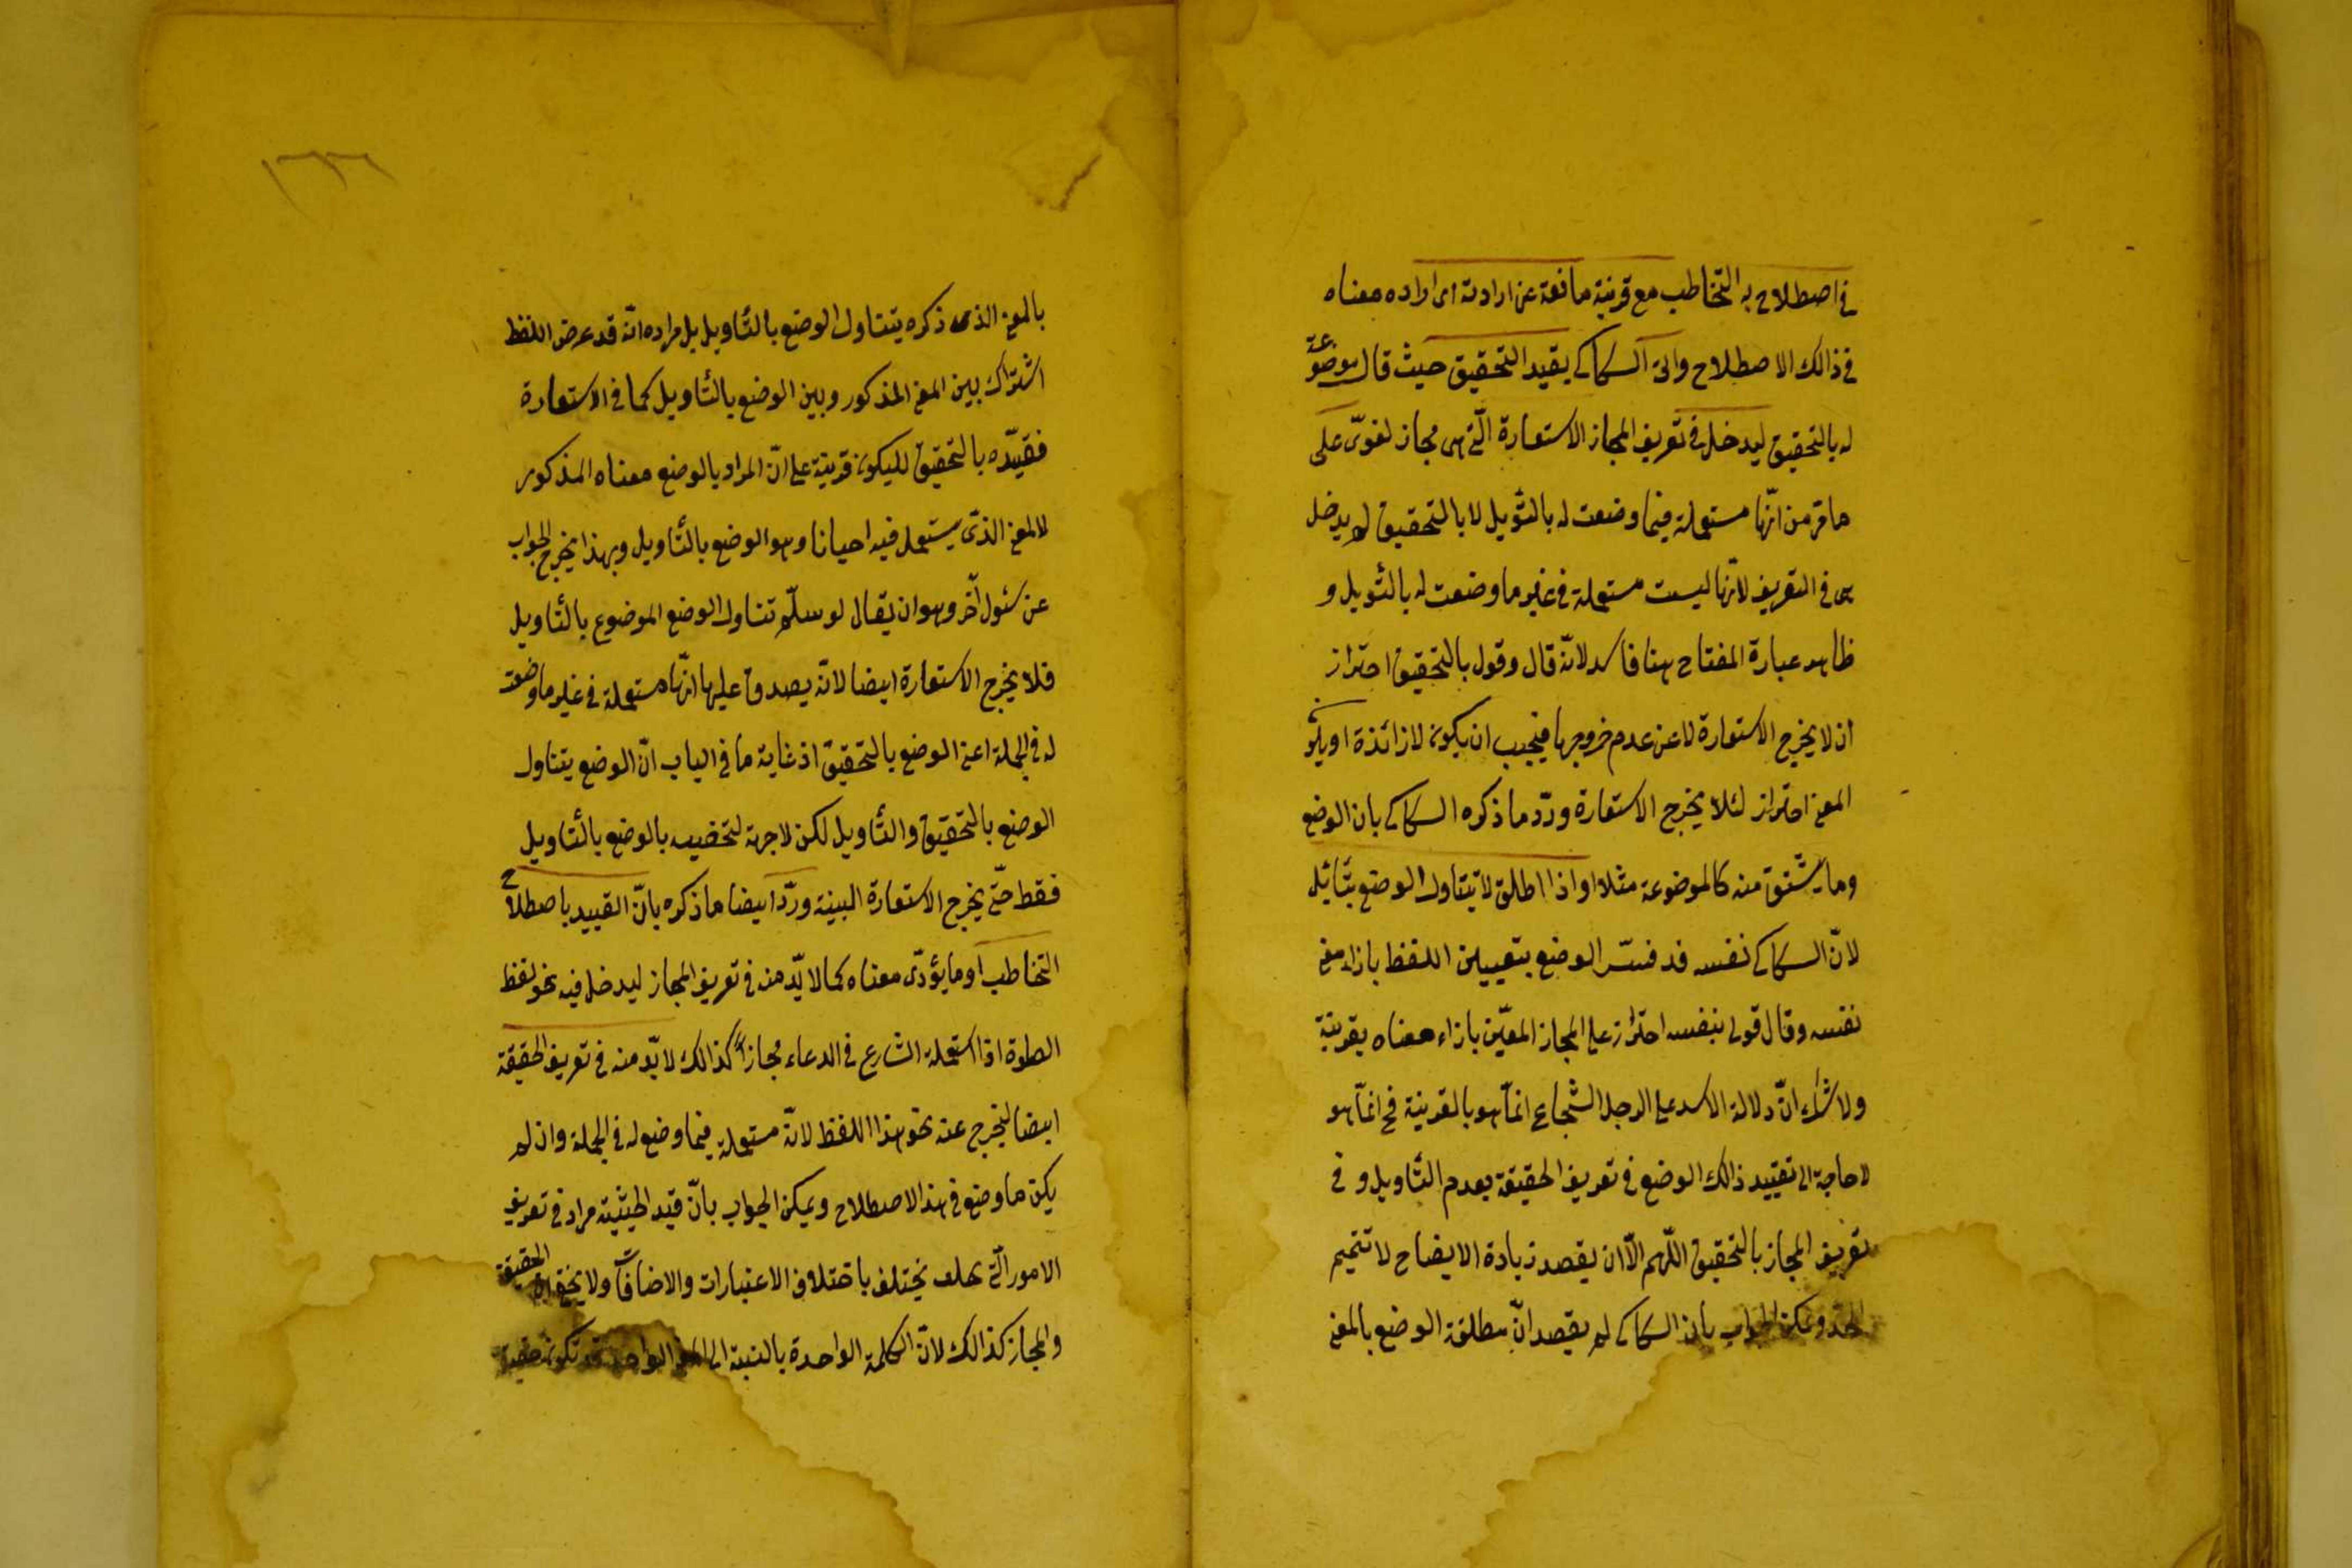 فى اصطلاح به التخاطب مع قرينة مانعة عن ارادته اى اراده معناه
فى ذالك الاصطلاح واتى السكاكى بقيد التحقيق حيث قال موضوعة
له بالتحقيق ليدخل فى تعريف المجاز الاستعارة الّتى هى مجاز لغوىّ على
ما مّر من انّها مستعملة فيما وضعت له بالتّويل لا بالتحقيق لم يدخل
هى فى التعريف لانّها ليست مستعملة فى غير ما وضعت له بالتّويل و
ظاهر عبارة المفتاح ههنا فاسد لانّه قال وقول بالتحقيق احتراز
ان لا يخرج الاستعارة لا عن عدم خروجها فيجب ان يكون لا زائدة او يكون
المعنى احتراز لئلا يخرج الاستعارة وردّ ما ذكره السكاكى بان الوضع
وما يشتق منه كالموضوعة مثلا او اذا اطلق لا يتناول الوضع بتأئيل
لانّ السكاكى نفسه قد فسّر الوضع بتعيين اللفظ بازاء معنى
نفسه وقال قولى بنفسه احتراز على المجاز المعيّن بازاء معناه بقرينة
ولا شك انّ دلالة الاسد على الرجل الشجاع انّما هو بالقرينة فح انّما هو
لا حاجة الى تقييد ذالك الوضع فى تعريف الحقيقة بعدم التأويل و فى
تعريف المجاز بالتحقيق اللّهم الّا ان يقصد زيادة الايضاح لا تتميم
الحد ويمكن الجواب بان السكاكى لم يقصد انّ مطلق الوضع بالمعنى
١٦٦
بالمعنى الذى ذكره يتناول الوضع بالتأويل بل مراده انّه قد عرض اللفظ
اشتراك بين المعنى المذكور وبين الوضع بالتأويل كما فى الاستعارة
فقيّده بالتحقيق ليكون قرينة على انّ المراد بالوضع معناه المذكور
لا المعنى الذّى يستعمل فيه احيانا وهو الوضع بالتأويل وبهذا يخرج الجواب
عن سئول آخر وهو ان يقال لو سلّم تناول الوضع الموضوع بالتأويل
فلا يخرج الاستعارة ايضا لانّه يصدق عليها انّها مستعملة فى غير ما وضعت
له فى الجملة اعنى الوضع بالتحقيق اذ غاية ما فى الباب انّ الوضع يتناول
الوضع بالتحقيق والتأويل لكن لا جهة لتخصيصه بالوضع بالتأويل
فقط حتّى يخرج الاستعارة البينة وردّ ايضا ما ذكره بانّ القييد باصطلاح
التخاطب او ما يؤدّى معناه كما لا بّد منه فى تعريف المجاز ليدخل فيه نحو لفظ
الصلوة اذا استعملة الشارع فى الدعاء مجازاً كذالك لا بّد منه فى تعريف الحقيقة
ايضا ليخرج عنه نحو هذا اللفظ لانّه مستعملة فيما وضع له فى الجملة وان لم
يكن ما وضع فى هذا الاصطلاح ويمكن الجواب بانّ قيّد الحيثية مراد فى تعريف
الامور الّتى يختلف باختلاف الاعتبارات والاضافات ولا يخفى انّ الحقيقة
والمجاز كذالك لانّ الكلمة الواحدة بالنسبة الى المعنى الواحد قد تكون حقيقة